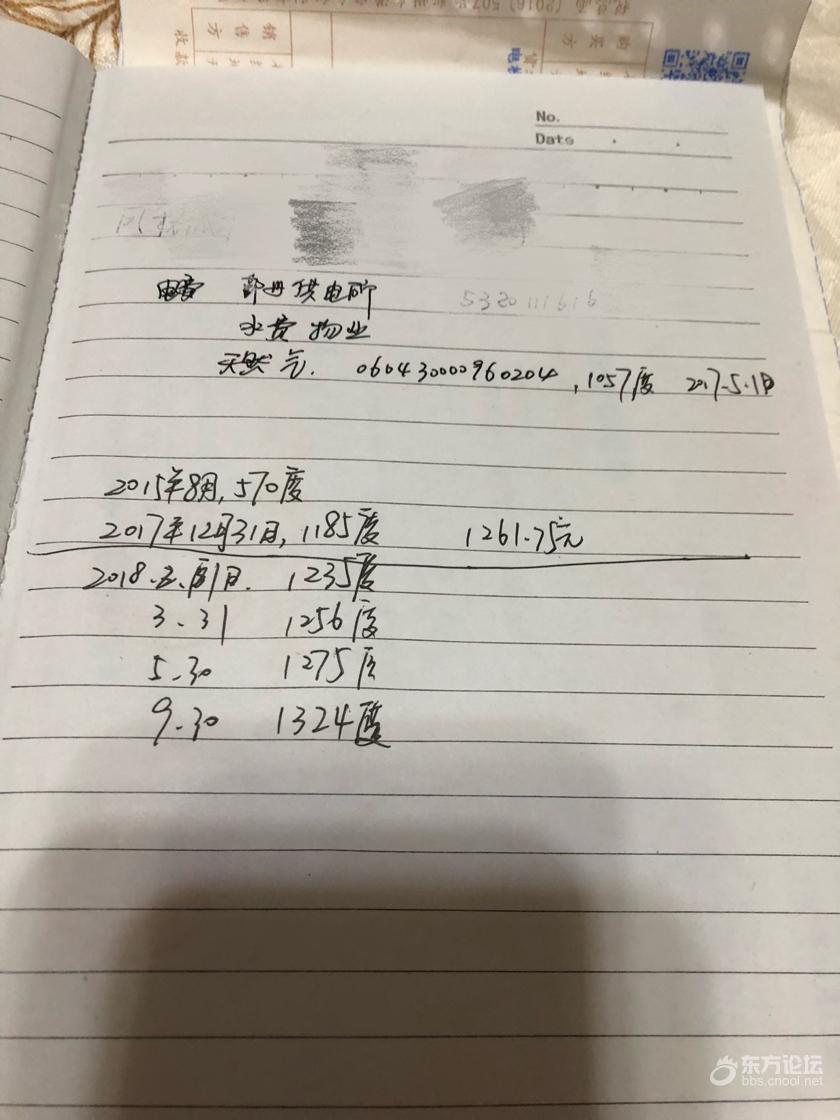 购买方
销售方
收款
No.
Date
电费 供电所
5320111616
水费 物业
天然气. 060430000960204, 1057度 2017.5.1日
2015年8月, 570度
2017年12月31日, 1185度 1261.75元
2018. 1235度
3.31 1256度
5.30 1275度
9.30 1324度
东方论坛
bbs.cnool.net